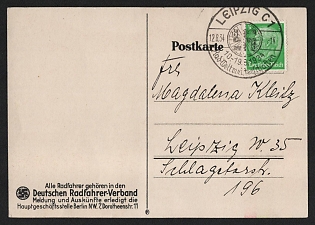 LEIPZIG C1
12.8.34
Postkarte
Frl.
Magdalena Kleitz
Leipzig W 35
Schlageterstr.
196
Alle Radfahrer gehören in den
Deutschen Radfahrer-Verband
Meldung und Auskünfte erledigt die
Hauptgeschäftsstelle Berlin NW. 7, Dorotheenstr. 11